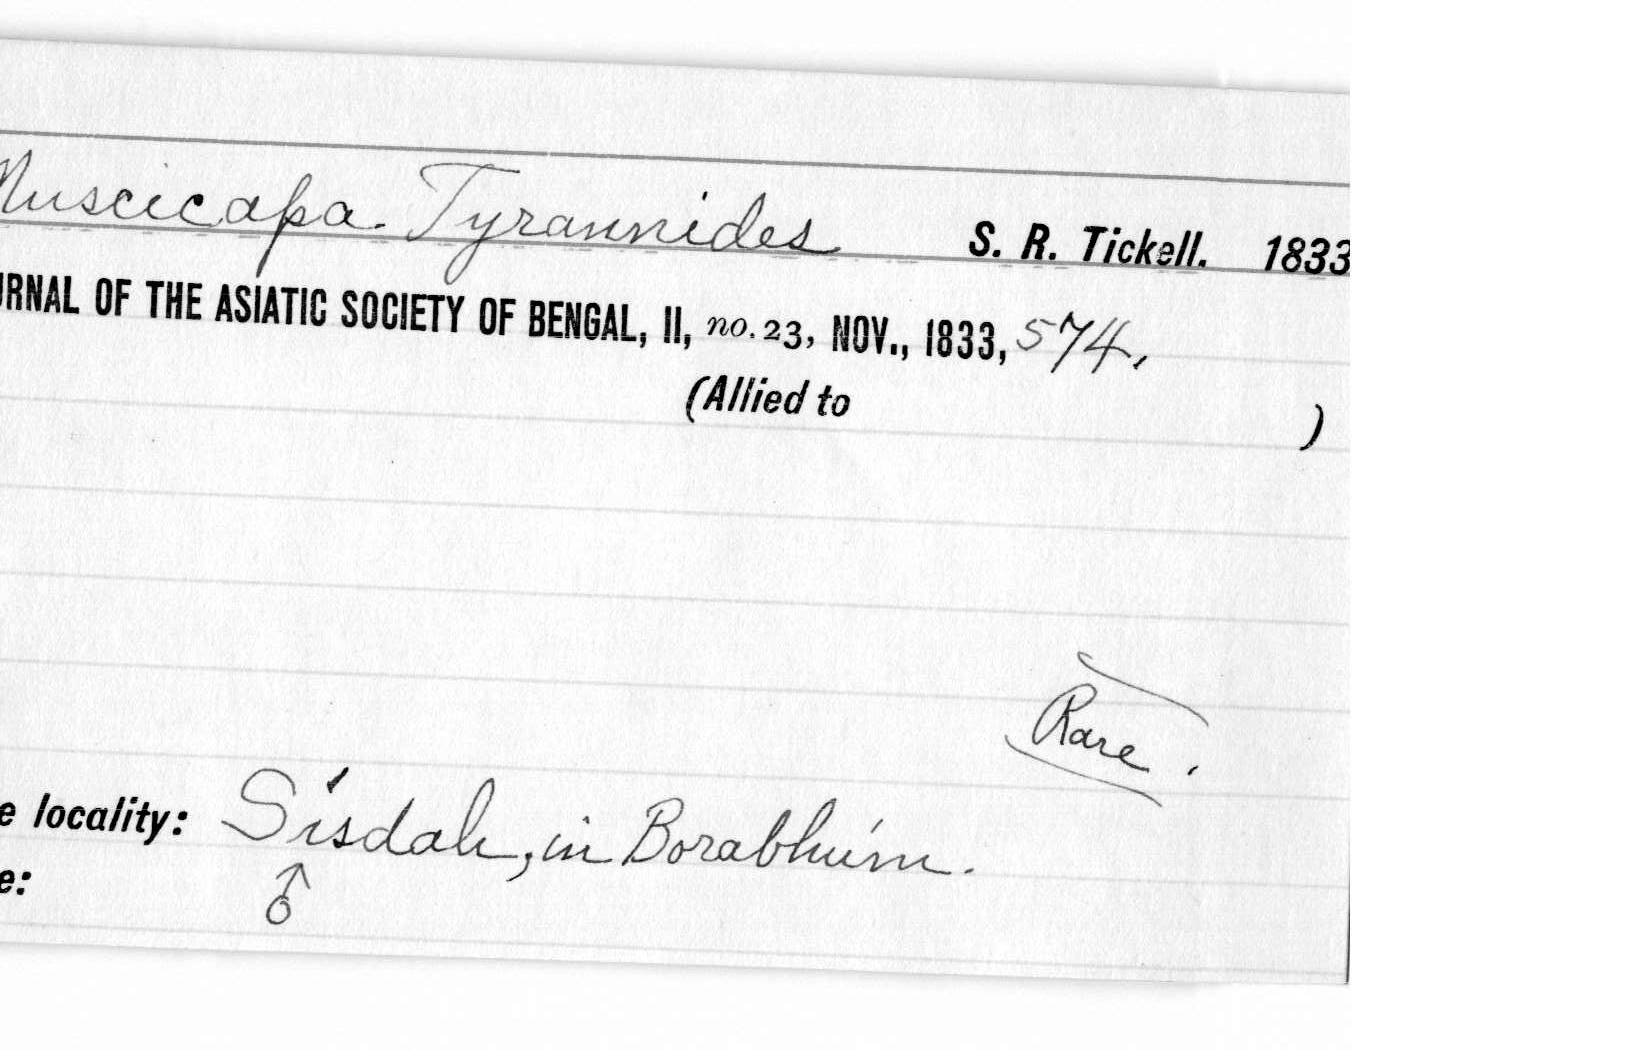 Muscicapa Tyrannides S. R. Tickell. 1833
URNAL OF THE ASIATIC SOCIETY OF BENGAL, II, no. 23, NOV., 1833, 574.
(Allied to )
Rare.
e locality: Sisdah, in Borabhúm.
e: ♂